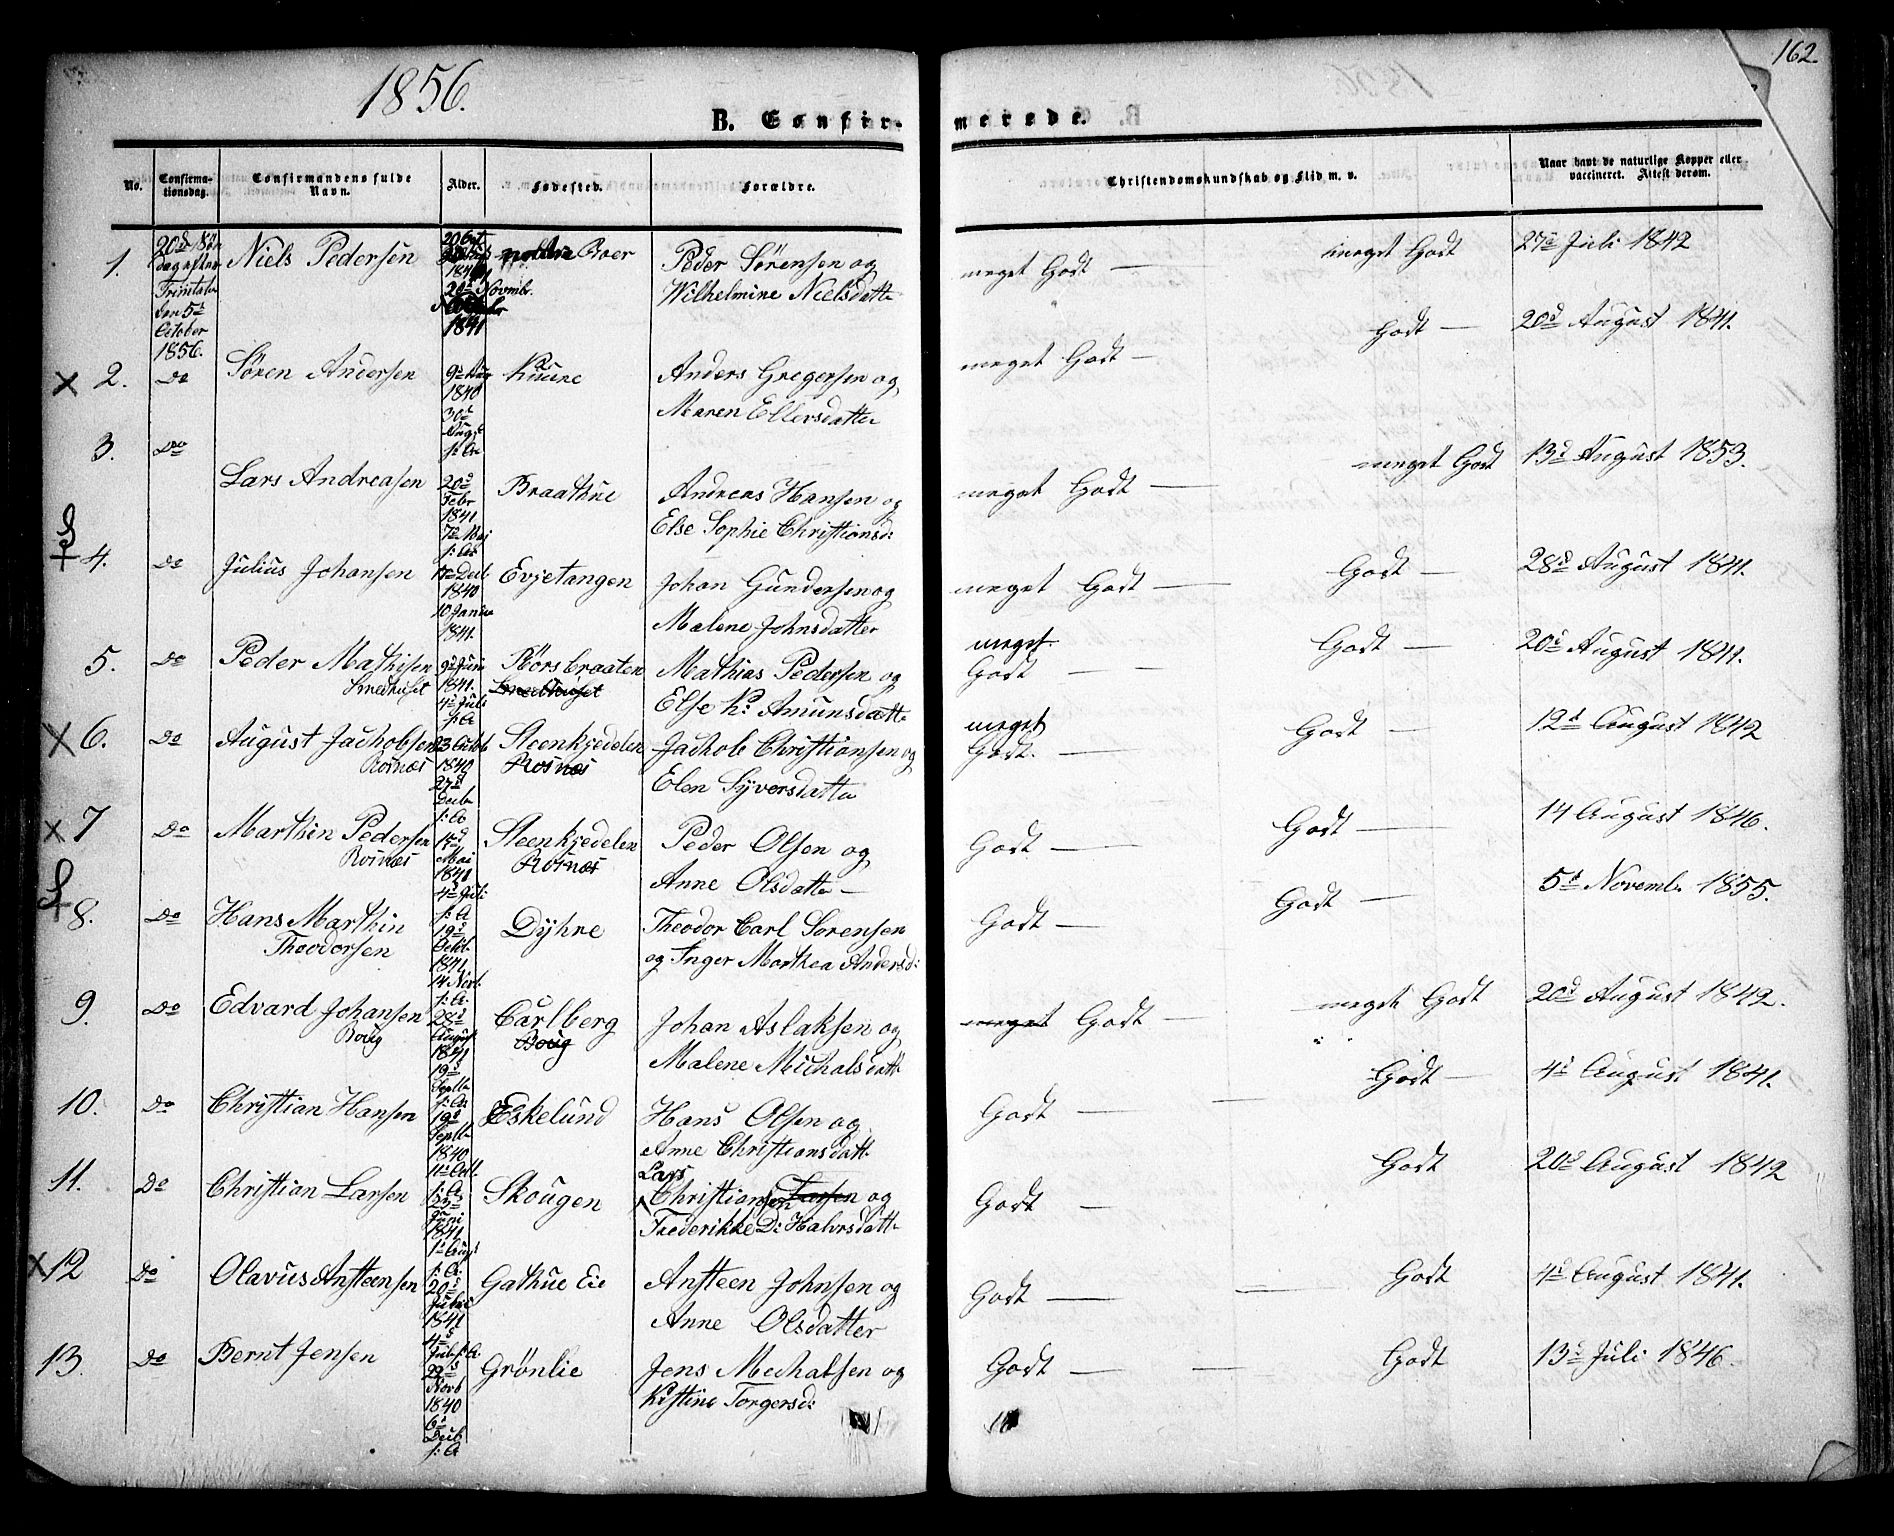 162.
1856.
B. Confirmerede.
No.
Confirma-
tionsdag.
Confirmandens fulde
Navn.
Alder.
Fødested.
Forældre.
Christendomskundskab og Flid m. v.
Naar havt de naturlige Kopper eller
vaccineret. Attest derom.
1.
20de Søn
dag efter
Trinitatis
den 5te
October
1856.
Niels Pedersen
Novmbr.
1841
Roer
Peder Sørensen og
Wilhelmine Nielsdatte
meget Godt —
meget Godt
27de Juli 1842
x 2.
Do
Søren Andersen
9de Aug
1840
30d
Augst
f: A
Kuune
Anders Gregersen og
Maren Ellersdatter
meget Godt —
Godt —
20d August 1841.
3.
Do
Lars Andreasen
20d
Febr
1841
7de Mai
f: A
Braathue
Andreas Hansen og
Else Sophie Christiansd:
meget Godt —
meget Godt
13d August 1853.
4.
Do
Julius Johansen
Decb.
1840
10 Januar
1841.
Evjetangen
Johan Gundersen og
Malene Johnsdatter
meget Godt —
Godt —
28d August 1841.
5.
Do
Peder Mathisen
Smedhuset
9de Juni
1841.
4de Juli
f: A
Rørsbraaten
Smedhuset
Mathias Pedersen og
Else K: Amunsdatte
meget
Godt — —
Godt —
20d August 1841.
x 6.
Do
August Jachobsen
Rosnæs
23 Octob
1840
27d
Decbr
f: A
Steenkjedelen
Rosnæs
Jachob Christiansen og
Elen Syversdatte
meget
Godt. —
Godt —
12d August 1842
x 7
Do
Marthin Pedersen
Rosnæs
Mai
1841
4d Juli
f: A
Steenkjedelen
Rosnæs
Peder Olsen og
Anne Olsdatte —
Godt —
Godt —
14 August 1846.
8.
Do
Hans Marthin
Theodorsen
19d
Octob.
1841
14 Novb.
f: A.
Dyhre
Theodor Carl Sorensen
og Inger Marthea Andersd:
Godt —
Godt —
5d Novemb. 1855.
9.
Do
Edvard Johansen
Boug
28d
August
1841
19d
Septbr
f: A
Carlberg
Boug
Johan Aslaksen og
Malene Michalsdatt
meget Godt —
meget Godt
20d August 1842.
10.
Do
Christian Hansen
19d
Septbr
1840
11d Octb.
f: A
Eskelund
Hans Olsen og
Anne Christiansdatt.
Godt — —
Godt —
4d August 1841.
11.
Do
Christian Larsen
23d
Juni
1841
1d Augst
f: A.
Skougen
Lars
Christiansen Larsen og
Frederikke D: Halvrsdatt
Godt —
Godt
20d August 1842
x 12
Do
Olavus Ansteensen
20d
1841
4d
Juli f: A.
Gathue Eie
Ansteen Johnsen og
Anne Olsdatter
Godt — —
Godt
4d August 1841.
13.
Do
Bernt Jensen
22d
Novb
1840
6d
Decb
f: A
Grønlie
Jens Michalsen og
Kistine Torgersd:
Godt — —
Godt
13d Juli 1846.